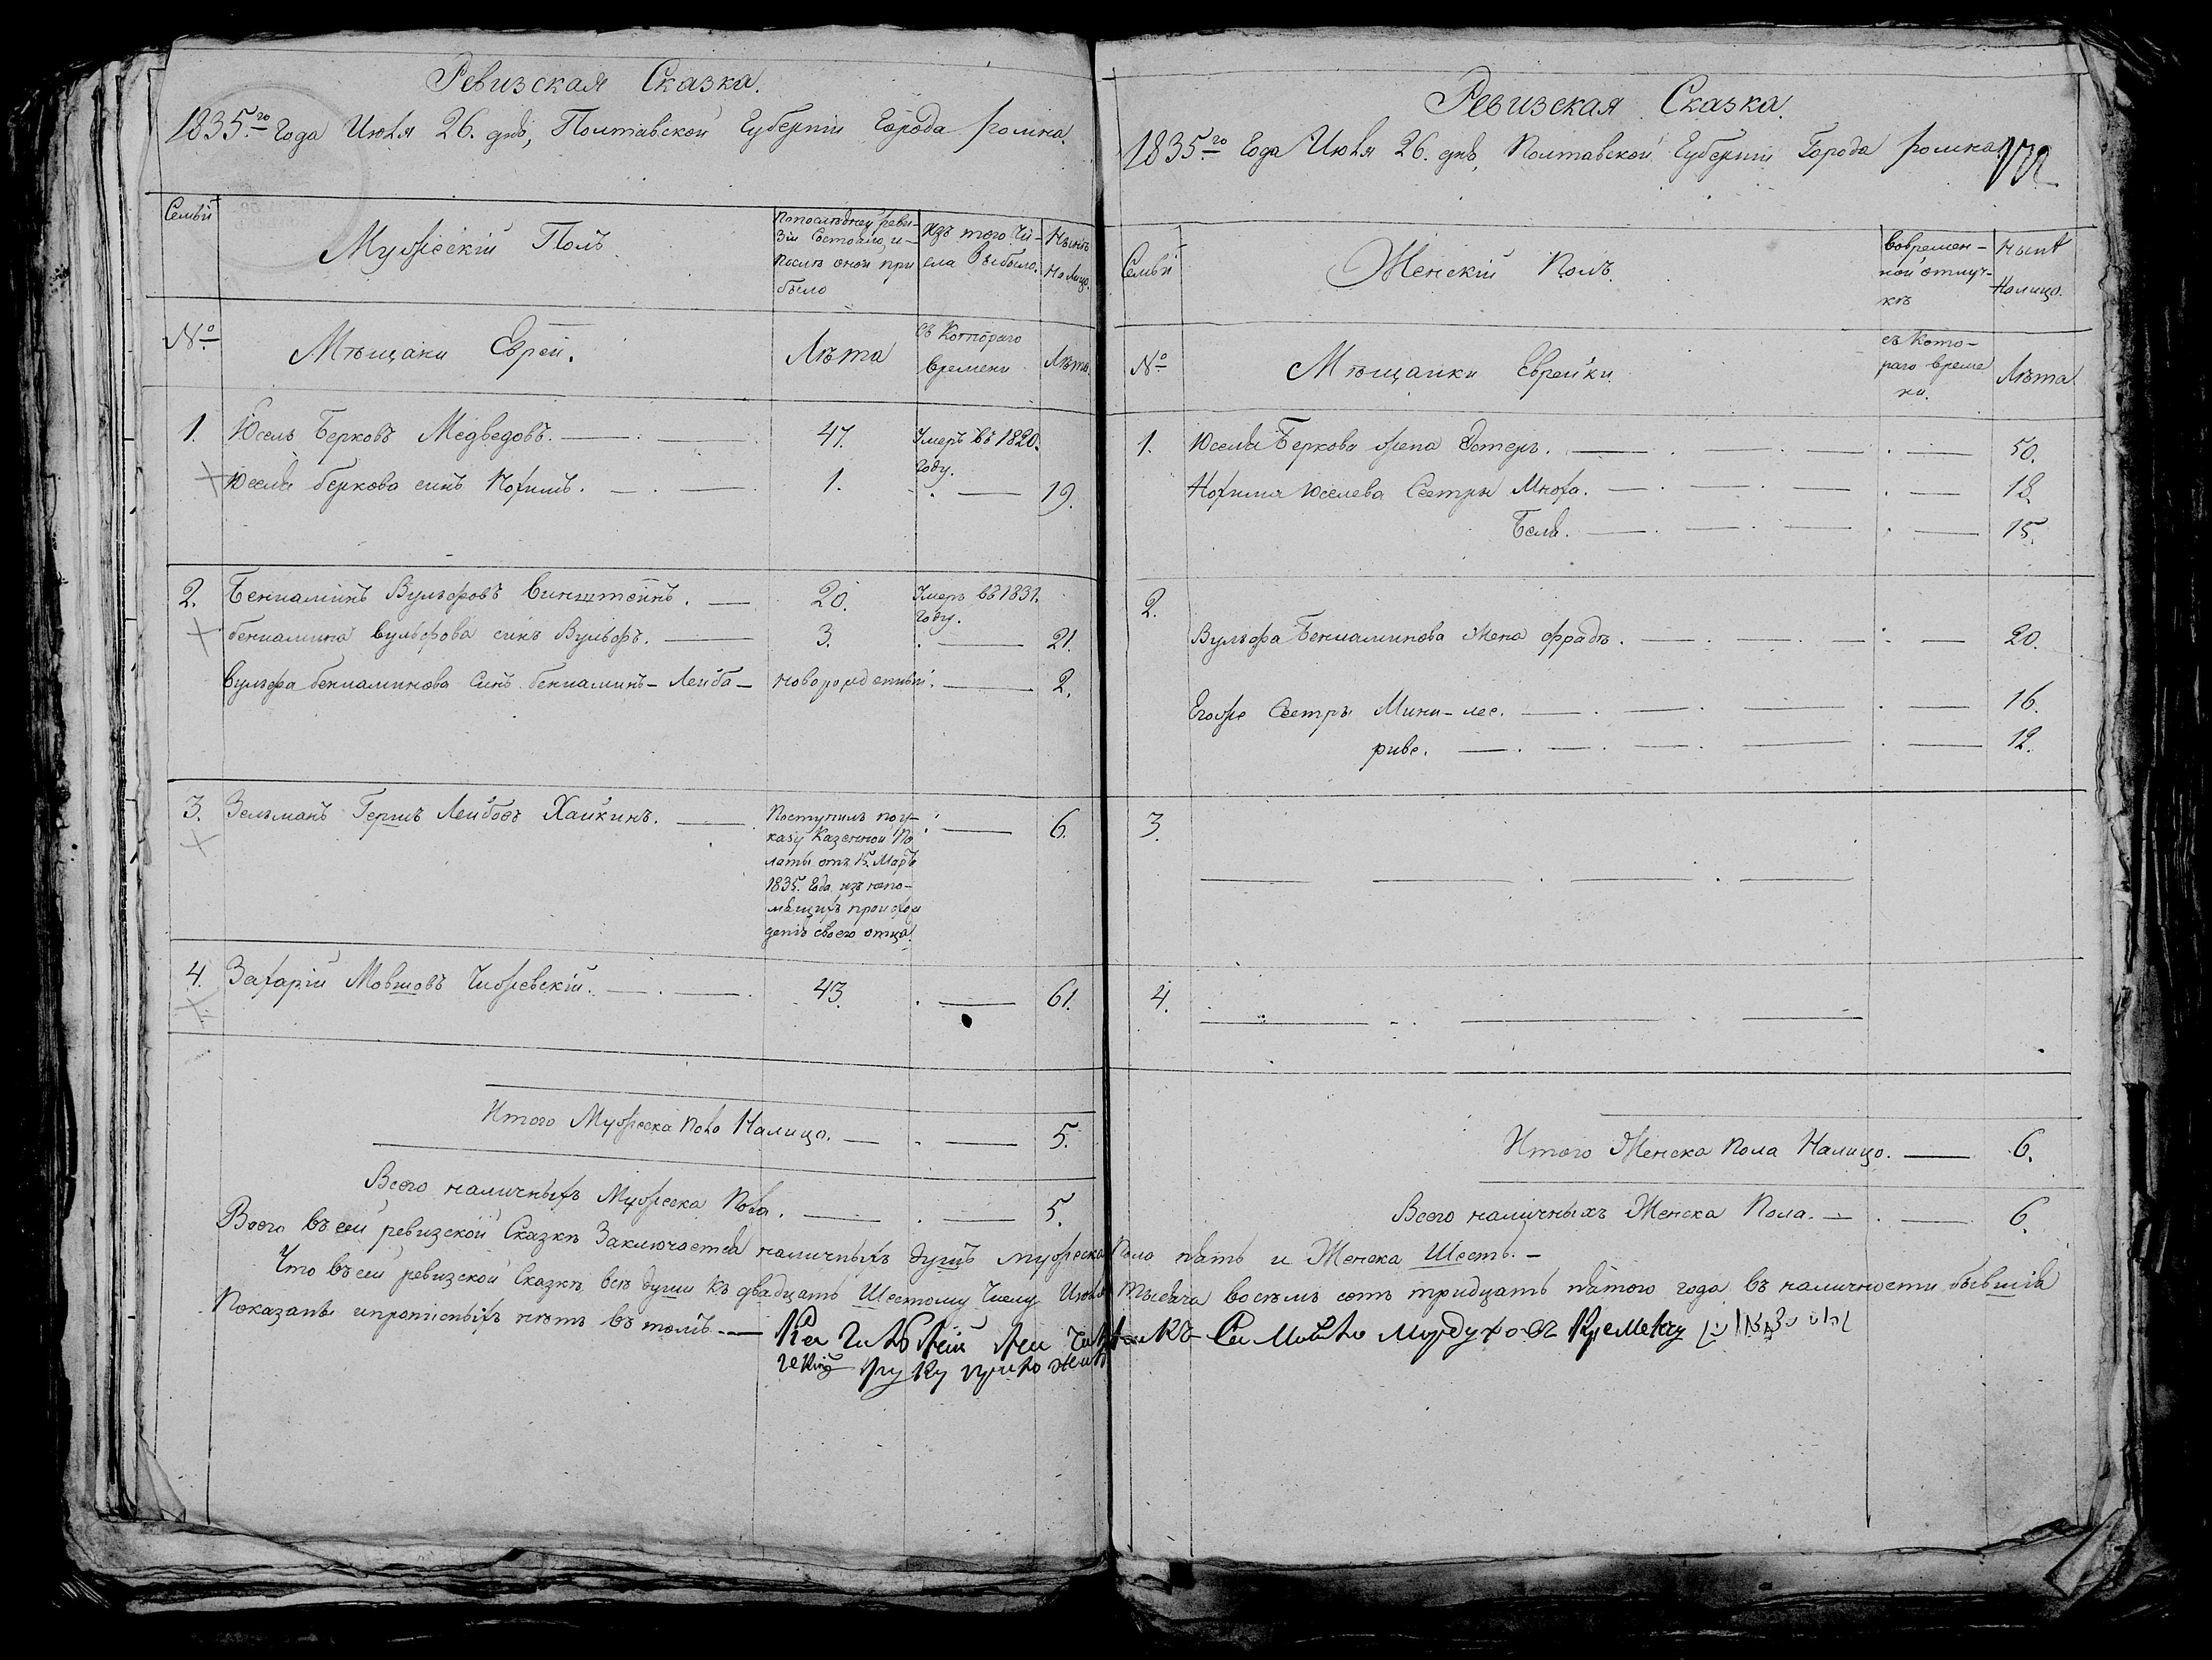 Ревизская Сказка.
1835.го Года Июля 26. дня, Полтавской Губернии Города Ромна.
Семьи
Мужескій Полъ.
По последней реви-
зіи Состояло, и
после оной при
было
Изъ того чи-
сла Выбыло.
Нынѣ
На лицо.
№
Мѣщане Евреи.
Лѣта
съ Котораго
времени
Лѣта.
1. Юсель Берковъ Медведовъ. 47. Умеръ въ 1820.
году.
Юселя беркова синъ Нохимъ. 1. 19.
2. Бениаминъ Вульфовъ Винштеинъ. 20. Умеръ въ 1831.
году.
бениамина вульфова синъ Вульфъ. 3. 21.
Вульфа бениаминова Синъ бениаминъ-Лейба новорожденный. 2.
3. Зельманъ Гершъ Лейбовъ Хайкинъ. Поступилъ по у-
казу Казенной Па
латы отъ 15. Марта
1835. Года изъ непо-
мнящихъ происхож
денія своего отца. 6.
4. Захарій Мовшовъ Чижевскій. 43. 61.
Итого Мужеска Пола Налицо. 5.
Всего наличныхъ Мужеска Пола. 5.
Ревизская Сказка.
1835.го Года Июля 26. дня, Полтавской Губерніи Города Ромна
Семьи
Женскій Полъ.
Вовремен-
ной отлуч-
кѣ
Нынѣ
Налицо.
№
Мѣщанки Еврейки.
съ Кото-
раго време
ни.
Лѣта
1. Юселя Беркова жена Эстеръ. 50.
Нохима Юселева Сестры Мноха. 18.
Беля. 15.
2.
Вульфа Бениаминова Жена фрадъ. 20.
Егоже Сестры Мини-лее. 16.
риве. 12.
3.
4.
Итого Женска Пола Налицо. 6.
Всего наличныхъ Женска Пола. 6.
Всего въ сей ревизской Сказкѣ Заключается наличныхъ душъ мужеска Пола пять и Женска Шесть.
Что въ сей ревизской Сказкѣ всѣ души къ двадцать Шестому Числу Июля тысяча восемь сотъ тридцать пятого года въ наличности бывшія
Показаны и пропісныхъ нѣтъ въ томъ.
руку приложилъ